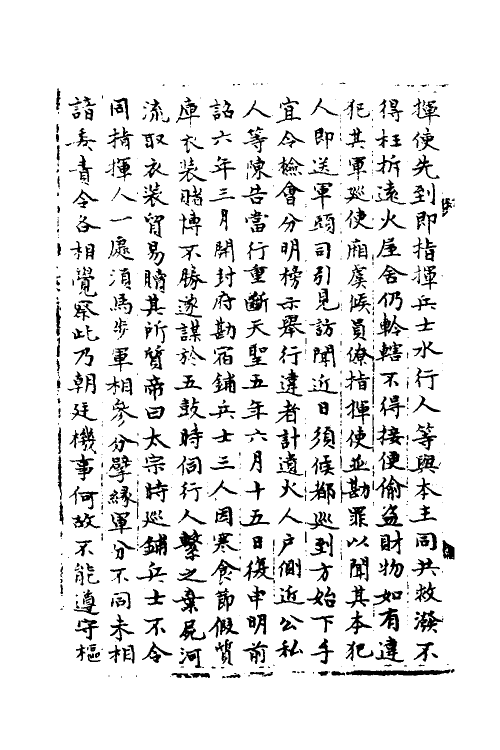 揮使先到即指揮兵士水行人等與本主同共救潑不
得枉拆遠火屋舍仍鈐轄不得接便偷盗財物如有違
犯其軍巡使廂虞候員僚指揮使並勘罪以聞其本犯
人即送軍頭司引見訪聞近日須候都巡到方始下手
宜令檢會分明榜示舉行違者計遺火人户側近公私
人等陳告當行重斷天聖五年六月十五日復申明前
詔六年三月開封府勘宿鋪兵士三人因寒食節假質
庫衣装賭博不勝遂謀於五鼓時伺行人繫之棄屍河
流取衣装貿易贖其所質帝曰太宗時巡鋪兵士不令
同指揮人一處須馬步軍相參分擘緣軍分不同未相
諳委責令各相覺察此乃朝廷機事何故不能遵守樞